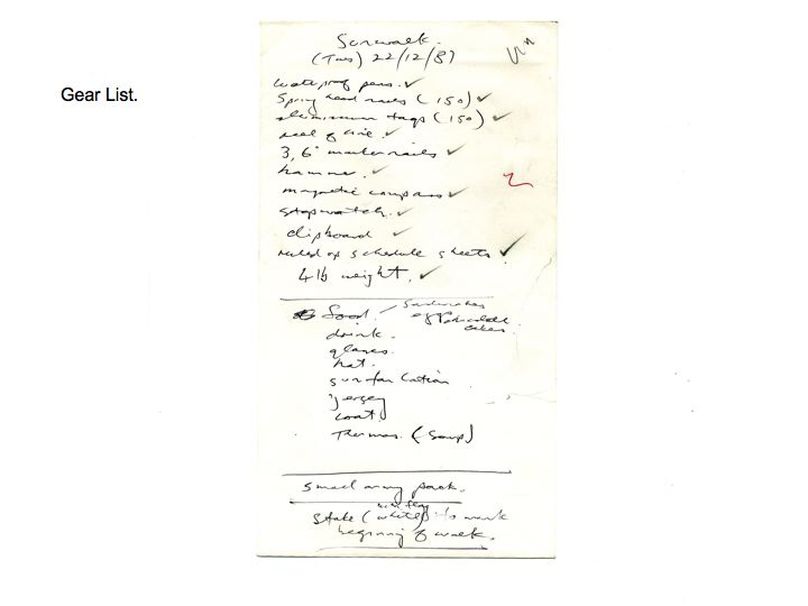 Gear List.
Sunwalk.
(Tues) 22/12/87
waterproof pens. ✓
Spring head nails (150) ✓
aluminium tags (150) ✓
reel of wire. ✓
3, 6" marker nails ✓
hammer. ✓
magnetic compass ✓
stopwatch. ✓
clipboard ✓
ruled up schedule sheets ✓
4 lb weight. ✓
Food. / Sandwiches
eggs
cakes
drink.
glasses.
hat.
suntan lotion
jersey
coat
Thermos. (Soup)
Small army pack.
with flag
Stake (white) to mark
beginning of walk.